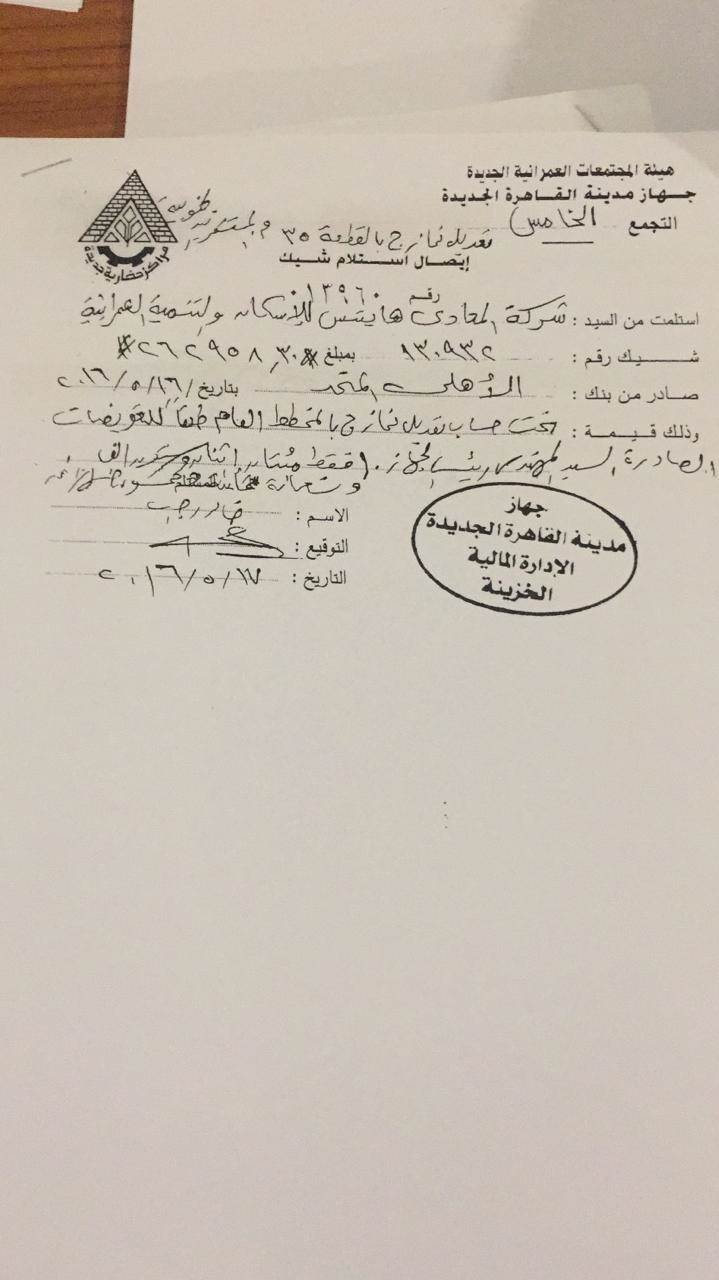 هيئة المجتمعات العمرانية الجديدة
جهاز مدينة القاهرة الجديدة
التجمع الخامس
تعديل نماذج بالقطعة ٣٥ م المستثمرين
مراكز حضارية جديدة
إيصال استلام شيك
رقم ٠١٣٩٦٠
استلمت من السيد : شركة المعادى هايتس للإسكان والتنمية العمرانية
شيك رقم : ١٣٠٩٣٢ بمبلغ #٢٦٢٩٥٨,٣٠#
صادر من بنك : الأهلى المتحد بتاريخ ٢٠١٦/٥/١٦
وذلك قيمة : تحت حساب تعديل نماذج بالمخطط العام طبقاً للتفويضات
الصادرة السيد المهندس رئيس الجهاز . فقط مئتان اثنان وستون الف
وتسعمائة
الاسم :
التوقيع :
التاريخ : ٢٠١٦/٥/١٧
جهاز
مدينة القاهرة الجديدة
الإدارة المالية
الخزينة